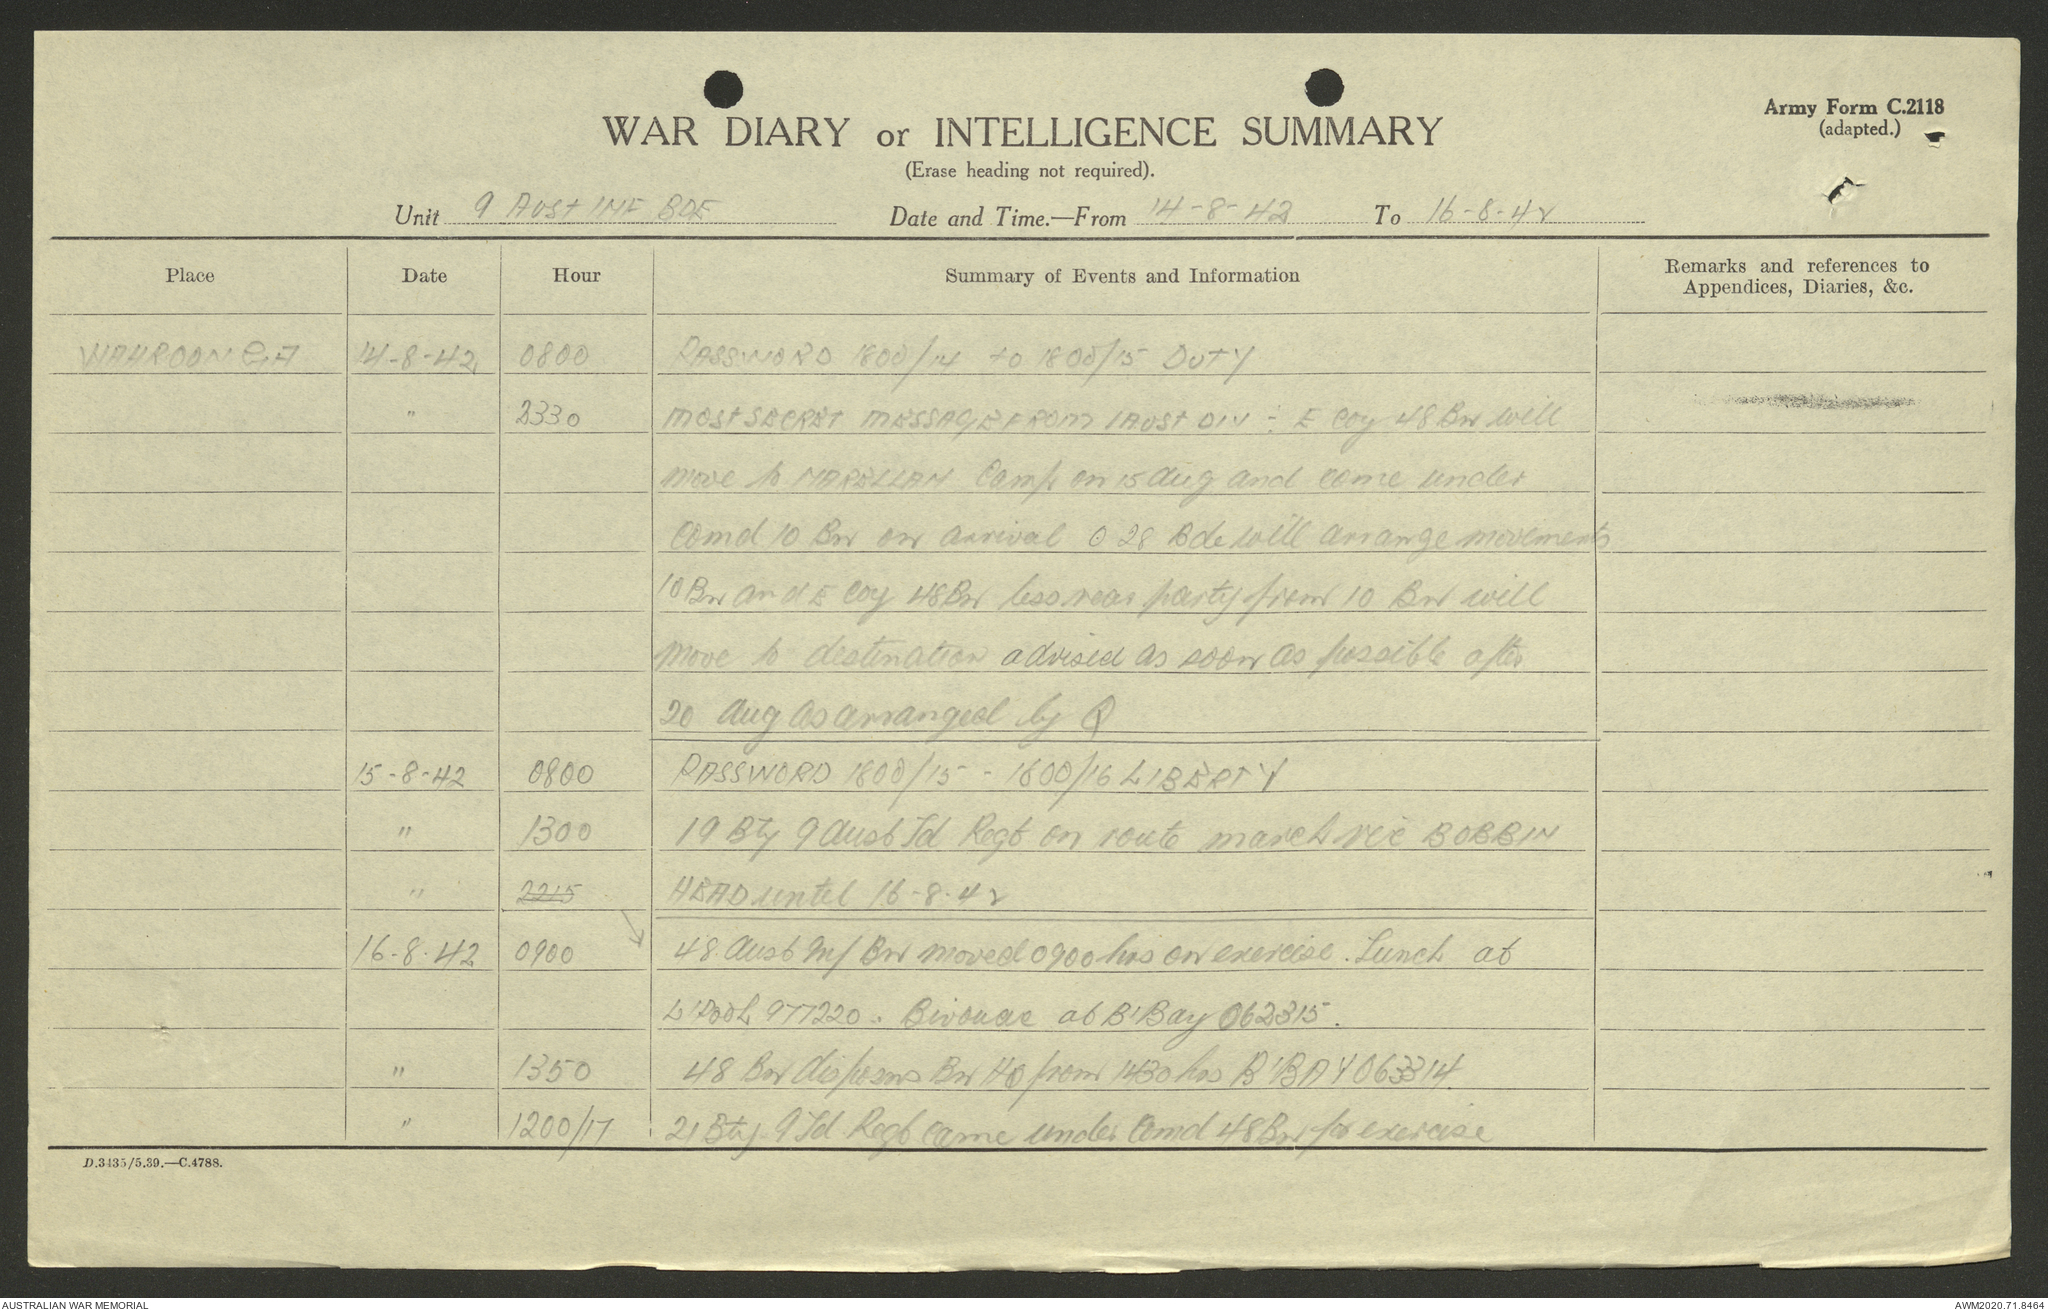 Army Form C.2118
(adapted.)
WAR DIARY or INTELLIGENCE SUMMARY
(Erase heading not required).
Unit 9 AUST INF BDE Date and Time.—From 14-8-42 To 16-8-42
Place Date Hour Summary of Events and Information Remarks and references to
Appendices, Diaries, &c.
WAHROONGA 14-8-42 0800 PASSWORD 1800/14 to 1800/15 DUTY
" 2330 MOST SECRET MESSAGE FROM 1 AUST DIV : E Coy 48 Bn will
move to NARELLAN Camp on 15 Aug and come under
Comd 10 Bn on arrival 0 28 Bde will arrange movements
10 Bn and E Coy 48 Bn less rear party from 10 Bn will
move to destination advised as soon as possible after
20 Aug as arranged by Q
15-8-42 0800 PASSWORD 1800/15 - 1800/16 LIBERTY
" 1300 19 Bty 9 Aust Fd Regt on route march vic BOBBIN
" 2215 HEAD until 16-8-42
16-8-42 0900 48 Aust Inf Bn moved 0900 hrs on exercise. Lunch at
L'POOL 977220. Bivouac at B'Bay 062315.
" 1350 48 Bn Bn HQ from 1430 hrs B'BAY 063314
" 1200/17 21 Bty 9 Fd Regt came under Comd 48 Bn for exercise
D.3435/5.39.—C.4788.
AUSTRALIAN WAR MEMORIAL AWM2020.71.8464